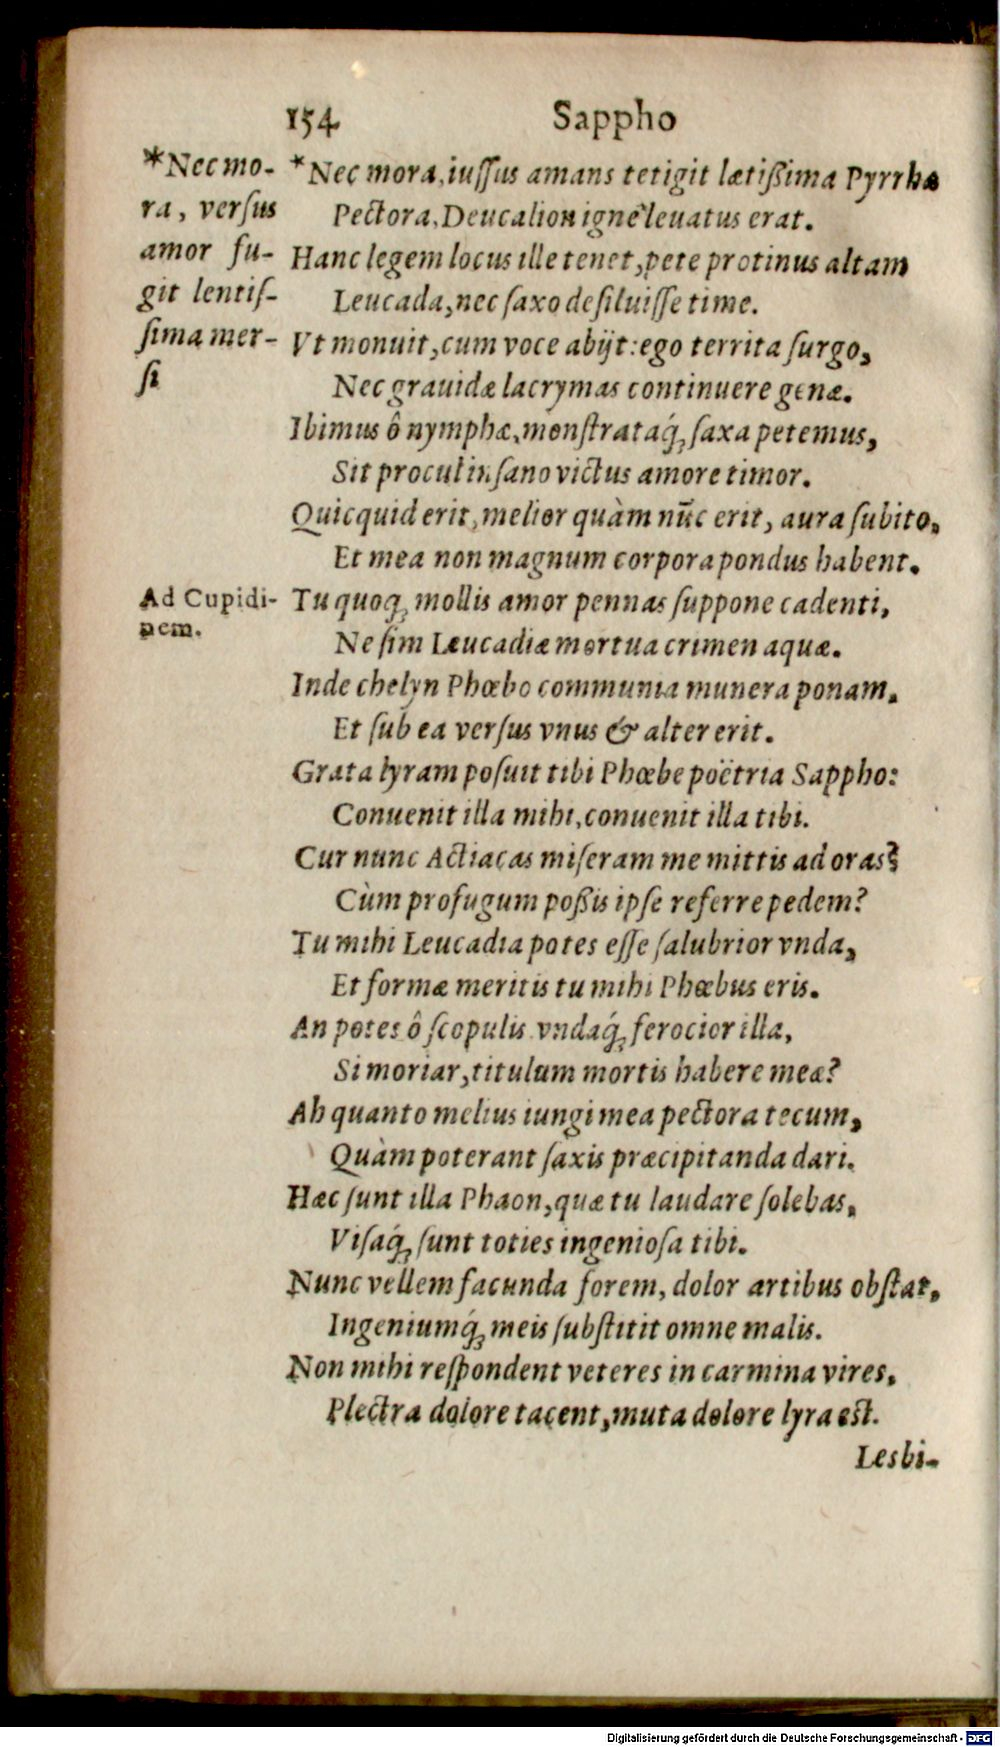 154 Sappho
*Nec mo-
ra, verſus
amor fu-
git lentiſ-
ſima mer-
ſi
*Nec mora, iuſſus amans tetigit lætißima Pyrrhæ
Pectora, Deucalion igne leuatus erat.
Hanc legem locus ille tenet, pete protinus altam
Leucada, nec ſaxo deſiluiſſe time.
Vt monuit, cum voce abijt: ego territa ſurgo,
Nec grauidæ lacrymas continuere genæ.
Ibimus ô nymphæ, monſtrataq́; ſaxa petemus,
Sit procul inſano victus amore timor.
Quicquid erit, melior quàm nūc erit, aura ſubito,
Et mea non magnum corpora pondus habent.
Ad Cupidi-
nem.
Tu quoq; mollis amor pennas ſuppone cadenti,
Ne ſim Leucadiæ mortua crimen aquæ.
Inde chelyn Phœbo communia munera ponam,
Et ſub ea verſus vnus & alter erit.
Grata lyram poſuit tibi Phœbe poëtria Sappho:
Conuenit illa mihi, conuenit illa tibi.
Cur nunc Actiacas miſeram me mittis ad oras?
Cùm profugum poßis ipſe referre pedem?
Tu mihi Leucadia potes eſſe ſalubrior vnda,
Et formæ meritis tu mihi Phœbus eris.
An potes ô ſcopulis vndaq́; ferocior illa,
Si moriar, titulum mortis habere meæ?
Ah quanto melius iungi mea pectora tecum,
Quàm poterant ſaxis præcipitanda dari.
Hæc ſunt illa Phaon, quæ tu laudare ſolebas,
Viſaq́; ſunt toties ingenioſa tibi.
Nunc vellem facunda forem, dolor artibus obſtat,
Ingeniumq́; meis ſubſtitit omne malis.
Non mihi reſpondent veteres in carmina vires,
Plectra dolore tacent, muta dolore lyra est.
Lesbi-
Digitalisierung gefördert durch die Deutsche Forschungsgemeinschaft - DFG